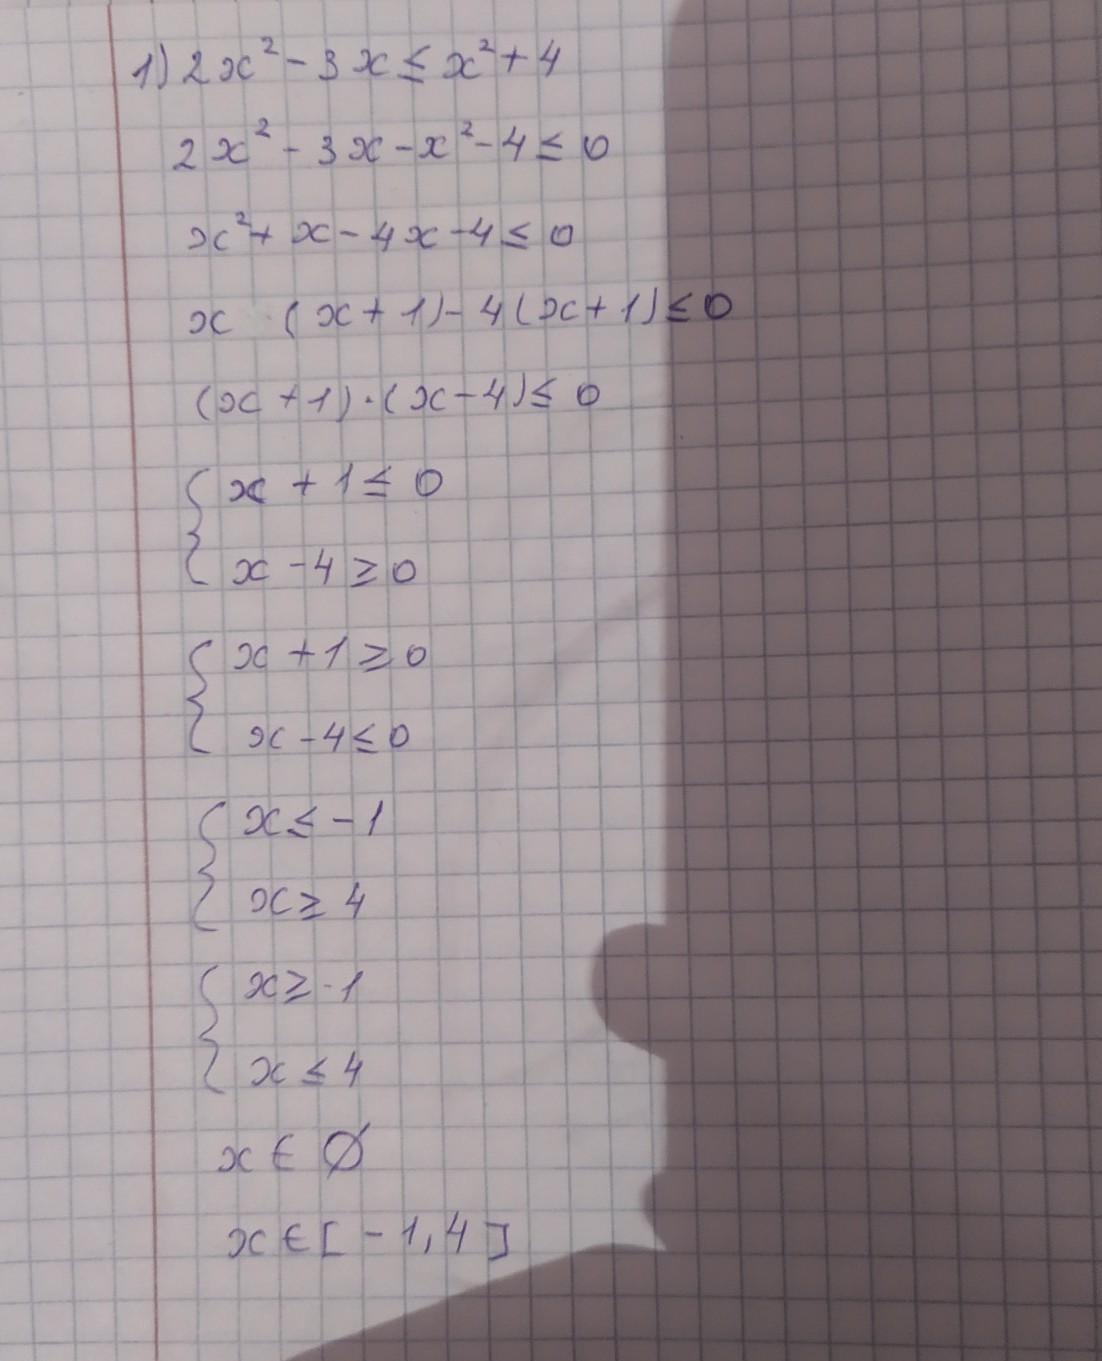 1) 2x² - 3x ≤ x² + 4
2x² - 3x - x² - 4 ≤ 0
x² + x - 4x - 4 ≤ 0
x (x + 1) - 4 (x + 1) ≤ 0
(x + 1) · (x - 4) ≤ 0
{ x + 1 ≤ 0
x - 4 ≥ 0
{ x + 1 ≥ 0
x - 4 ≤ 0
{ x ≤ -1
x ≥ 4
{ x ≥ -1
x ≤ 4
x ∈ Ø
x ∈ [ - 1, 4 ]